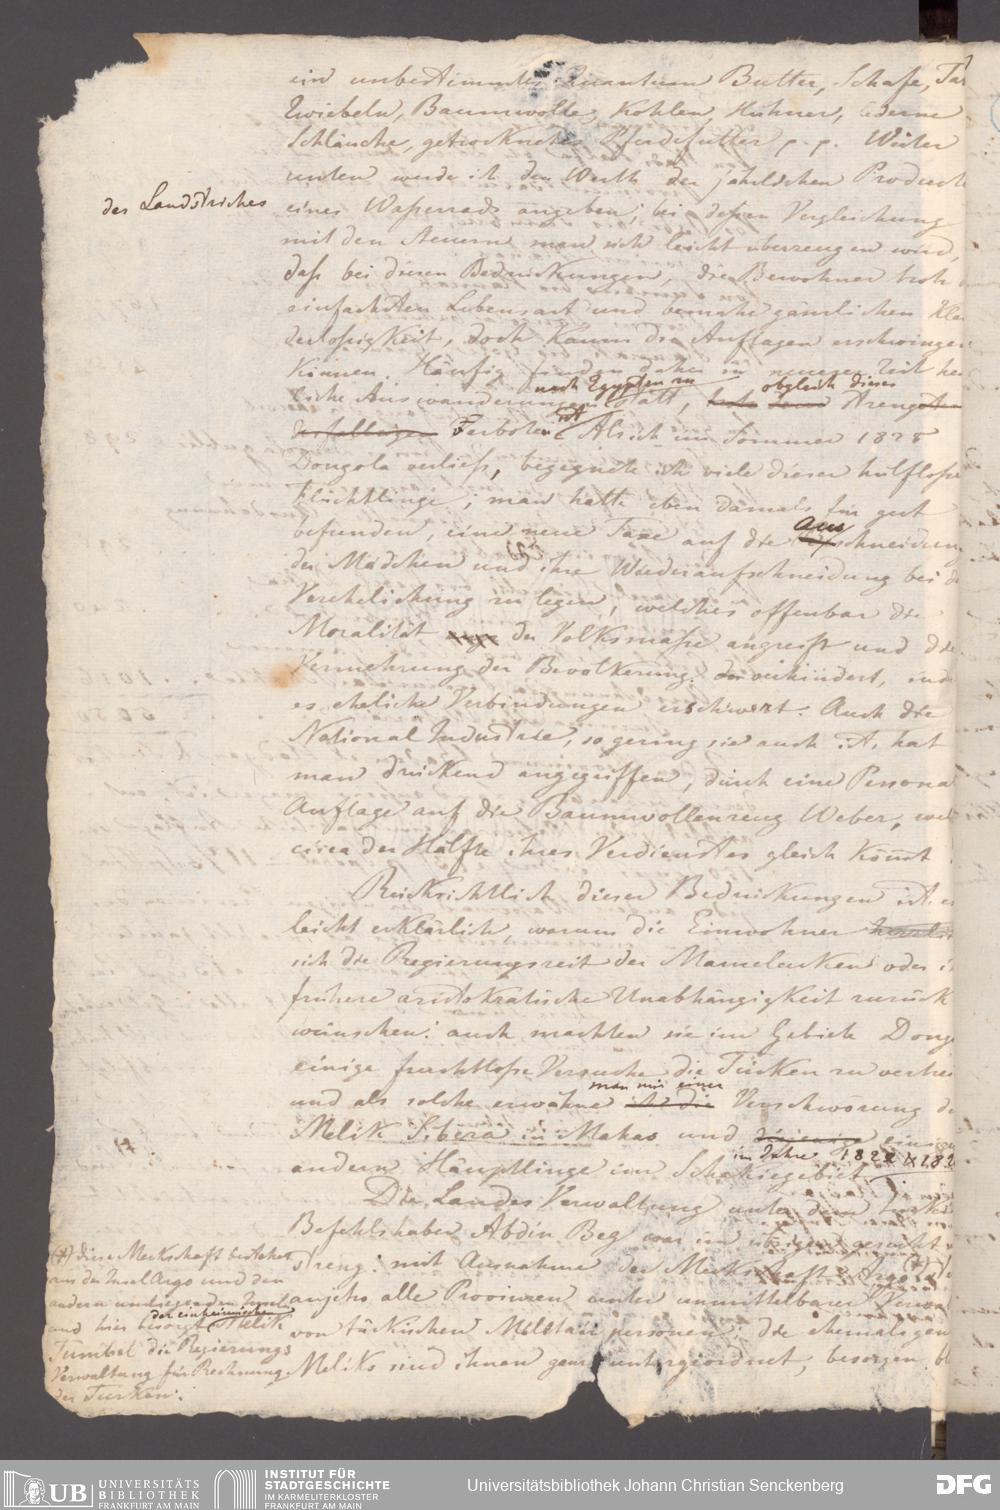 ein unbestimmtes Quantum Butter, Schafe, Tau
Zwiebeln, Baumwolle, Kohlen, Huhner, lederne
Schläuche, getrocknetes Pferdefutter p. p. Weiter
unten werde ich den Werth der jährlichen Producte
des Landstriches
eines Waßerrads angeben, bei deßen Vergleichung
mit den Steuern man sich leicht uberzeugen wird,
daß bei diesen Bedruckungen, die Bewohner trotz
einfachsten Lebensart und beinahe gänzlichen Klei
derlosigkeit, doch kaum die Auflagen erschwingen
können. Häufig finden daher in neuerer Zeit heim
nach Egypten zu obgleich dieses
liche Auswanderungen statt, streng
Verboten ist Als ich im Sommer 1825
Dongola verließ, begegnete ich viele dieser hulflosen
Fluchtlinge; man hatte eben damals fur gut
befunden, eine neue Taxe auf die aus
schneidung
der Mädchen und ihre Wiederaufschneidung bei der
Verehelichung zu legen, welches offenbar die
Moralität der Volksmaße angreift und die
Vermehrung der Bevolkerung verhindert, indem
es eheliche Verbindungen erschwert. Auch die
National Industrie, so gering sie auch ist, hat
man druckend angegriffen, durch eine Personal
Auflage auf die Baumwollenzeug Weber, welche
circa der Hälfte ihres Verdienstes gleich kömt.
Rucksichtlich dieser Bedruckungen ist es
leicht erklärlich warum die Einwohner
sich die Regierungszeit der Mamelucken oder ihre
frühere aristokratische Unabhängigkeit zurück
wünschen: auch machten sie im Gebiete Dongola
einige fruchtlose Versuche die Türken zu vertreiben
man mir einer
und als solche erwähne Verschwörung des
Melik Sibera in Makas und einiger
im Jahre 1822
andern Häuptlinge im Schakiegebiet
Die Landes Verwaltung unter dem turkischen
Befehlshaber Abdin Beg war im ubrigen gerecht
streng: mit Ausnahme der Mekschaft Argo (*)
anjetzo alle Provinzen unter unmittelbarer Verwaltung
von türkischen Militair personen; die ehemaligen
Meliks sind ihnen ganz untergeordnet, besorgen
(*) diese Mekschaft bestehet
aus der Insel Argo und den
andern umliegenden Inseln
der einheimische
und hier besorgt Melik
Tumbol die Regierungs
Verwaltung für Rechnung
der Turken.
UB UNIVERSITÄTS
BIBLIOTHEK
FRANKFURT AM MAIN
INSTITUT FÜR
STADTGESCHICHTE
IM KARMELITERKLOSTER
FRANKFURT AM MAIN
Universitätsbibliothek Johann Christian Senckenberg
DFG